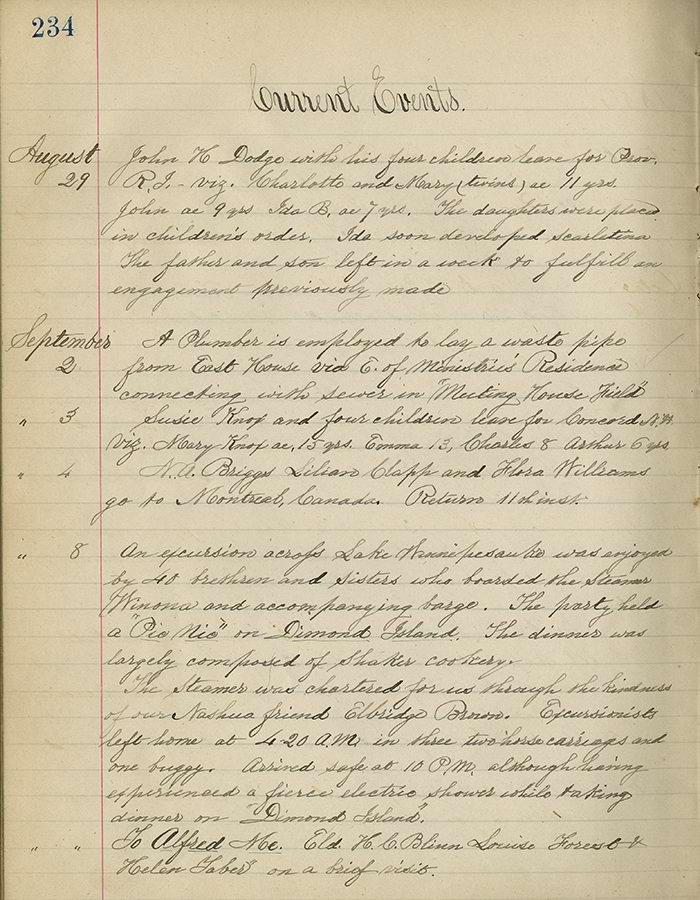 234
Current Events.
August 29 John H Dodge with his four children leave for Prov.
R.I. - viz. Charlotte and Mary (twins) ae 11 yrs.
John ae 9 yrs Ida B. ae 7 yrs. The daughters were placed
in children's order. Ida soon developed scarletina
The father and son left in a week to fulfill an
engagement previously made
September 2 A Plumber is employed to lay a waste pipe
from East House via E. of Ministrie's Residence
connecting with sewer in "Meeting House Field"
" 3 Susie Knox and four children leave for Concord N.H.
viz. Mary Knox ae, 15 yrs. Emma 13, Charles 8 Arthur 6 yrs
" 4 N.A. Briggs Lilian Clapp and Flora Williams
go to Montreal, Canada. Return 11th inst.
" 8 An excursion across Lake Winnipesauke was enjoyed
by 40 brethren and sisters who boarded the Steamer
Winona and accompanying barge. The party held
a "Pic Nic" on Dimond Island. The dinner was
largely composed of Shaker cookery.
The Steamer was chartered for us through the kindness
of our Nashua friend Elbridge Brown. Excursionists
left home at 4-20 A.M. in three two horse carriages and
one buggy. Arrived safe at 10 P.M. although having
experienced a fierce electric shower while taking
dinner on "Dimond Island".
" " To Alfred Me. Eld. H.C. Blinn Louise Forest &
Helen Taber on a brief visit.